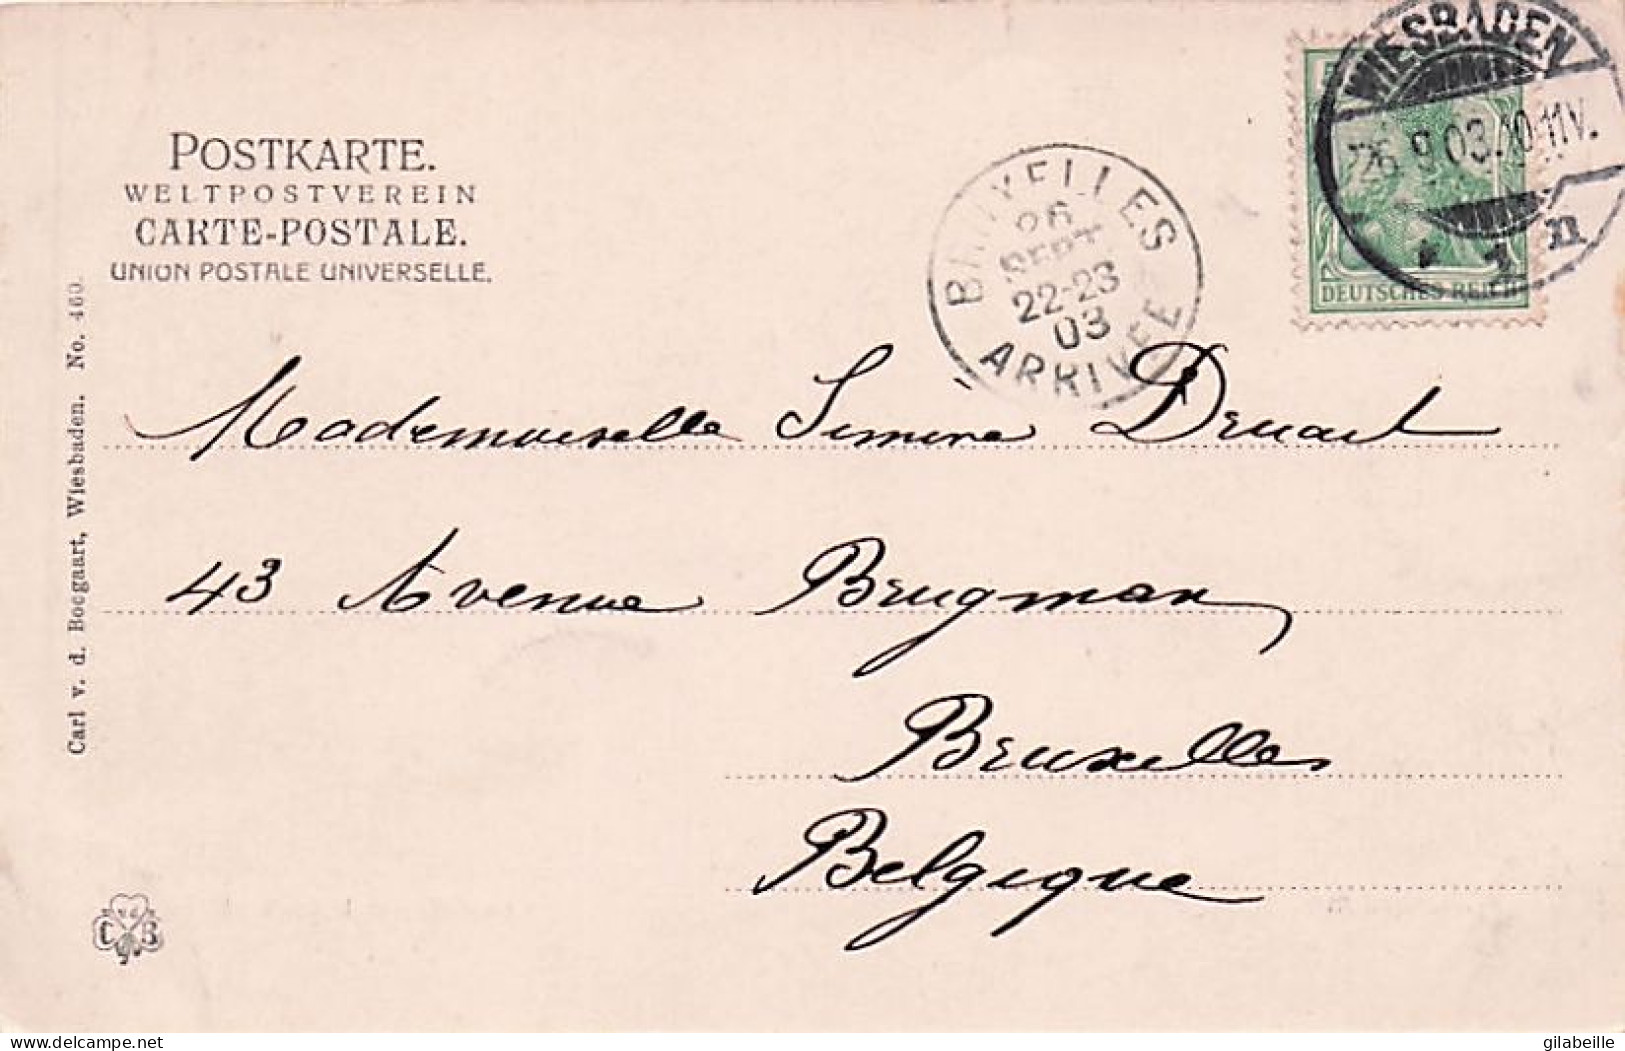 POSTKARTE.
WELTPOSTVEREIN
CARTE-POSTALE.
UNION POSTALE UNIVERSELLE.
BRUXELLES
26
SEPT.
22-23
03
ARRIVEE
WIESBADEN
26.9.03.10-11V.
* 1 n
DEUTSCHES REICH
Mademoiselle Simone Druart
43 Avenue Brugman
Bruxelles
Belgique
Carl v. d. Boogaart, Wiesbaden. No. 460.
v.d.
C B
delcampe.net
gilabeille